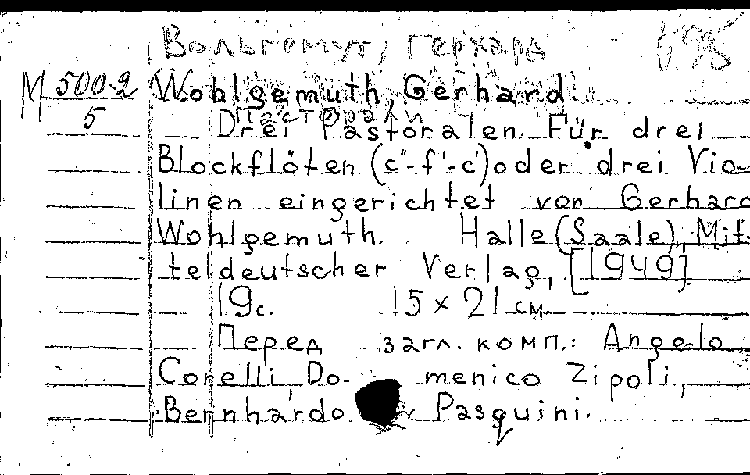 Вольгемут, Герхард 695
М 500-2 Wohlgemuth Gerhard
5
Пасторали
Drei Pastoralen. Für drei
Blockflöten (c"-f'-c') oder drei Vio-
linen eingerichtet von Gerhard
Wohlgemuth. Halle (Saale), Mit-
teldeutscher Verlag, [1949]
19 с. 15 x 21 см
Перед загл. комп.: Angelo
Corelli, Domenico Zipoli,
Bernhardo Pasquini.